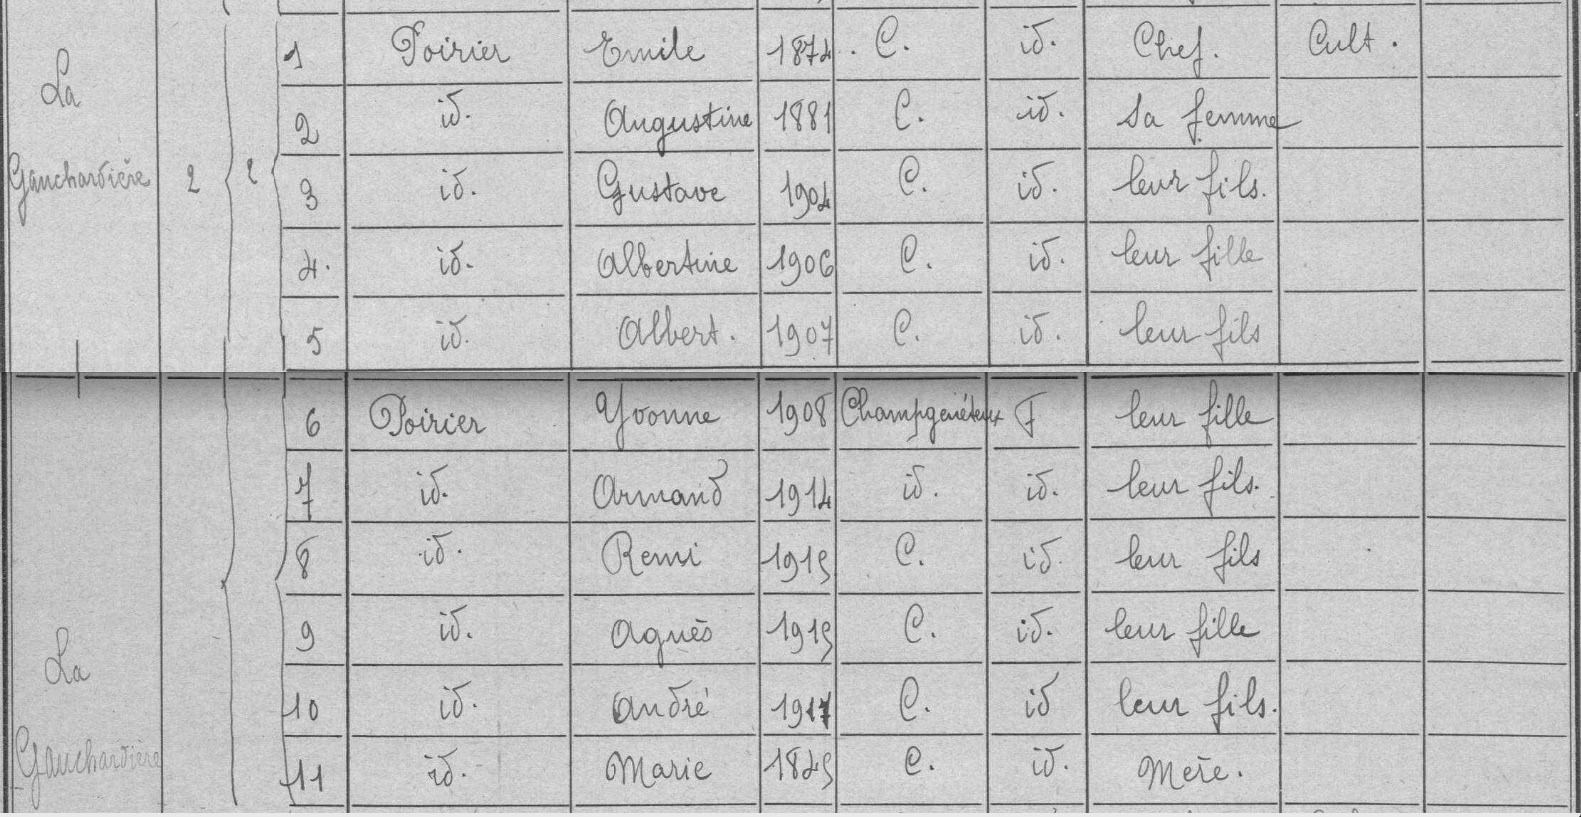 1 Poirier Emile 1874 . C. id. Chef. Cult.
La
2 id. Augustine 1881 C. id. Sa femme
Gauchardière 2 2
3 id. Gustave 1904 C. id. leur fils.
4. id. Albertine 1906 C. id. leur fille
5 id. Albert. 1907 C. id. leur fils
6 Poirier Yvonne 1908 Champgenéteux F leur fille
7 id. Armand 1914 id. id. leur fils.
8 id. Remi 1915 C. id. leur fils
9 id. Agnès 1915 C. id. leur fille
La
10 id. André 1917 C. id leur fils.
Gauchardière
11 id. Marie 1845 C. id. Mère.